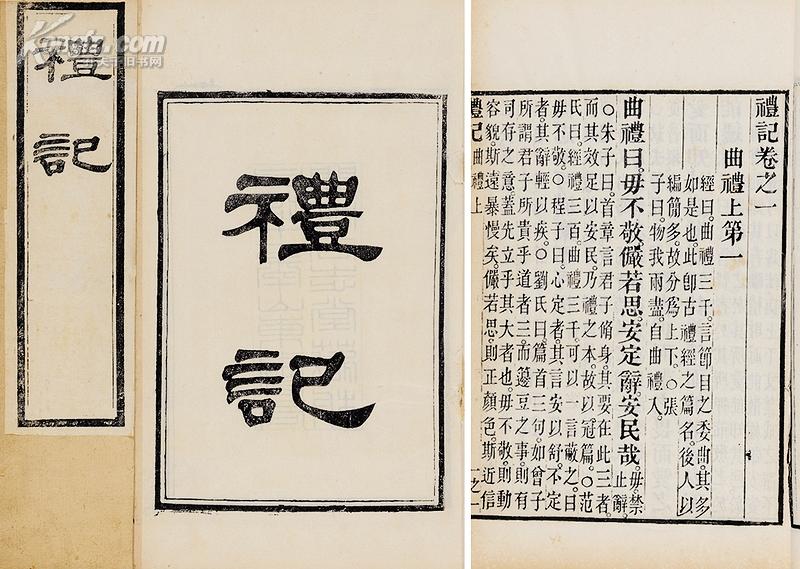 禮記
禮記
禮記卷之一
曲禮上第一
經曰曲禮三千言節目之委曲其多
如是也此卽古禮經之篇名後人以
編簡多故分爲上下○張
子曰物我兩盡自曲禮入
曲禮曰毋不敬儼若思安定辭安民哉止辭毋禁
○朱子曰首章言君子脩身其要在此三者
而其效足以安民乃禮之本故以冠篇○范
氏曰經禮三百曲禮三千可以一言蔽之曰
毋不敬○程子曰心定者其言安以舒不定
者其辭輕以疾○劉氏曰篇首三句如曾子
所謂君子所貴乎道者三而籩豆之事則有
司存之意蓋先立乎其大者也毋不敬則動
容貌斯遠暴慢矣儼若思則正顏色斯近信
禮記 曲禮上